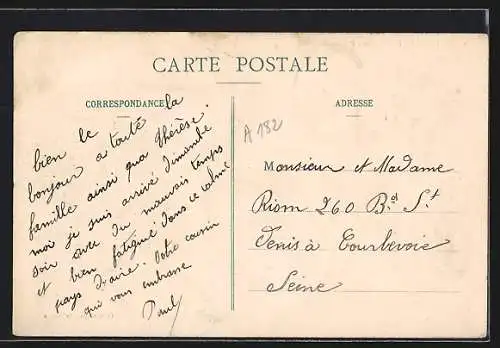 CARTE POSTALE
CORRESPONDANCE
ADRESSE
A 182
bien le
bonjour a toute la
famille ainsi qua thérèse.
moi je suis arrivé dimanche
soir avec du mauvais temps
et bien fatigué dans ce calme
pays d'aire. Votre cousin
qui vous embrasse
Paul
Monsieur et Madame
Riom 260 Bd St
Denis à Courbevoie
Seine